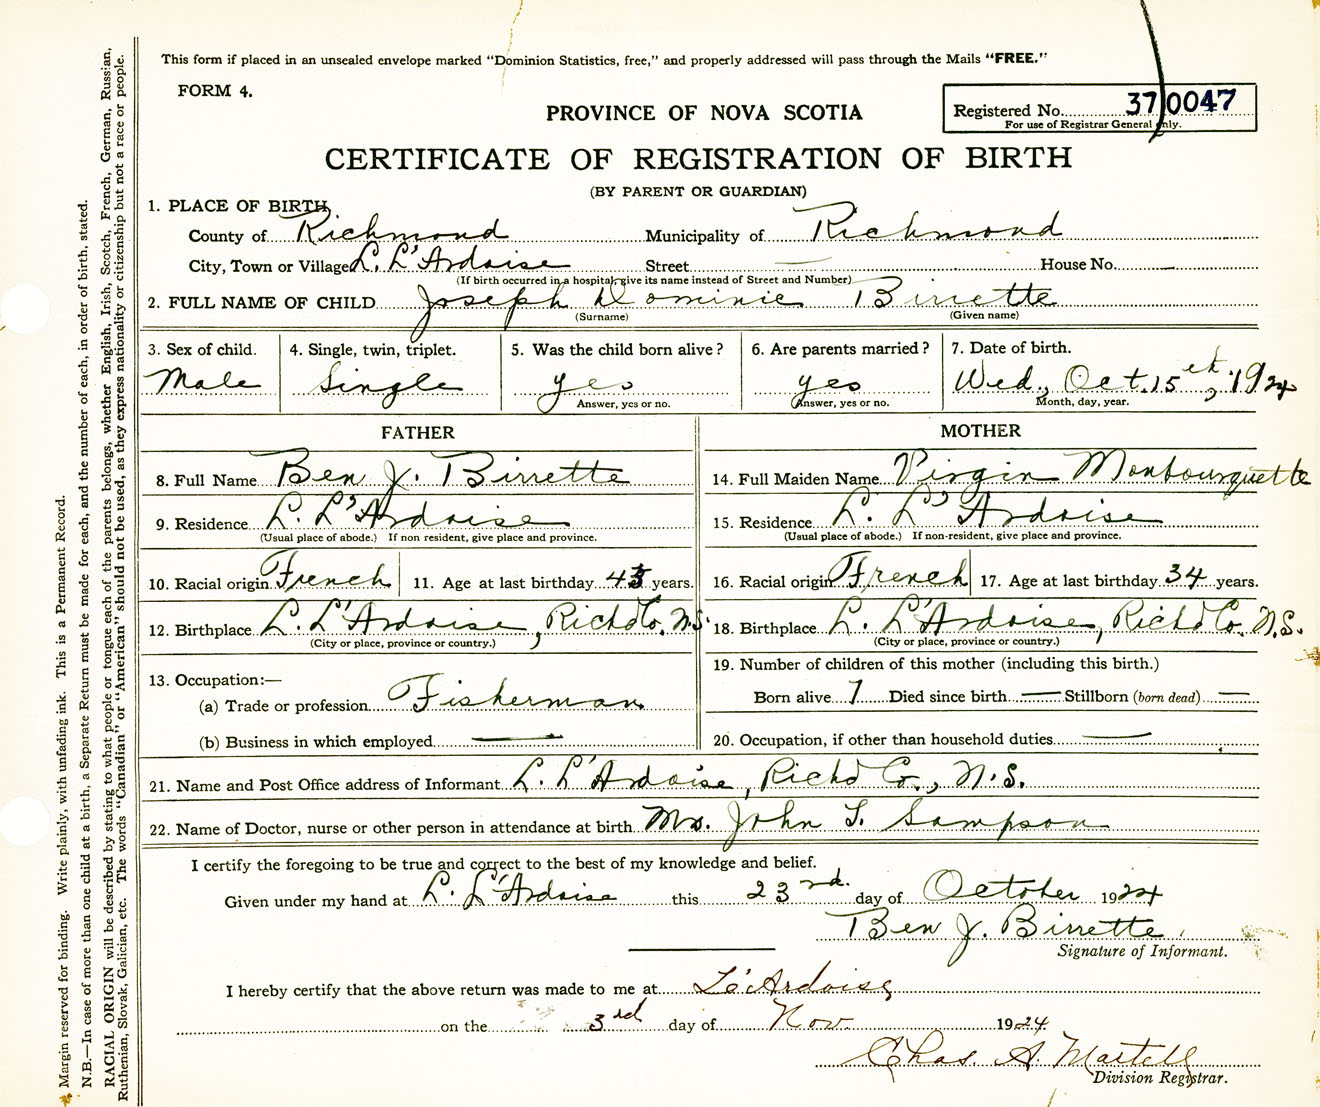 This form if placed in an unsealed envelope marked "Dominion Statistics, free," and properly addressed will pass through the Mails "FREE."
FORM 4.
PROVINCE OF NOVA SCOTIA
Registered No. 370047
For use of Registrar General only.
CERTIFICATE OF REGISTRATION OF BIRTH
(BY PARENT OR GUARDIAN)
1. PLACE OF BIRTH
County of Richmond Municipality of Richmond
City, Town or Village L. L'Ardoise Street — House No. —
(If birth occurred in a hospital, give its name instead of Street and Number)
2. FULL NAME OF CHILD Joseph Dominic Birrette
(Surname) (Given name)
3. Sex of child. 4. Single, twin, triplet. 5. Was the child born alive? 6. Are parents married? 7. Date of birth.
Male Single yes yes Wed., Oct. 15th, 1924
Answer, yes or no. Answer, yes or no. Month, day, year.
FATHER MOTHER
8. Full Name Ben J. Birrette 14. Full Maiden Name Virgin Monbourquette
9. Residence L. L'Ardoise 15. Residence L. L'Ardoise
(Usual place of abode.) If non resident, give place and province. (Usual place of abode.) If non-resident, give place and province.
10. Racial origin French 11. Age at last birthday 43 years. 16. Racial origin French 17. Age at last birthday 34 years.
12. Birthplace L. L'Ardoise, Richd Co. N.S. 18. Birthplace L. L'Ardoise, Richd Co. N.S.
(City or place, province or country.) (City or place, province or country.)
13. Occupation:— 19. Number of children of this mother (including this birth.)
(a) Trade or profession Fisherman Born alive 7 Died since birth — Stillborn (born dead) —
(b) Business in which employed — 20. Occupation, if other than household duties —
21. Name and Post Office address of Informant L. L'Ardoise, Richd Co., N.S.
22. Name of Doctor, nurse or other person in attendance at birth Mrs. John T. Sampson
I certify the foregoing to be true and correct to the best of my knowledge and belief.
Given under my hand at L. L'Ardoise this 23rd. day of October 1924
Ben J. Birrette
Signature of Informant.
I hereby certify that the above return was made to me at L'Ardoise
on the 3rd day of Nov. 1924
Chas. A. Martell
Division Registrar.
Margin reserved for binding. Write plainly, with unfading ink. This is a Permanent Record.
N.B.—In case of more than one child at a birth, a Separate Return must be made for each, and the number of each, in order of birth, stated.
RACIAL ORIGIN will be described by stating to what people or tongue each of the parents belongs, whether English, Irish, Scotch, French, German, Russian,
Ruthenian, Slovak, Galician, etc. The words "Canadian" or "American" should not be used, as they express nationality or citizenship but not a race or people.